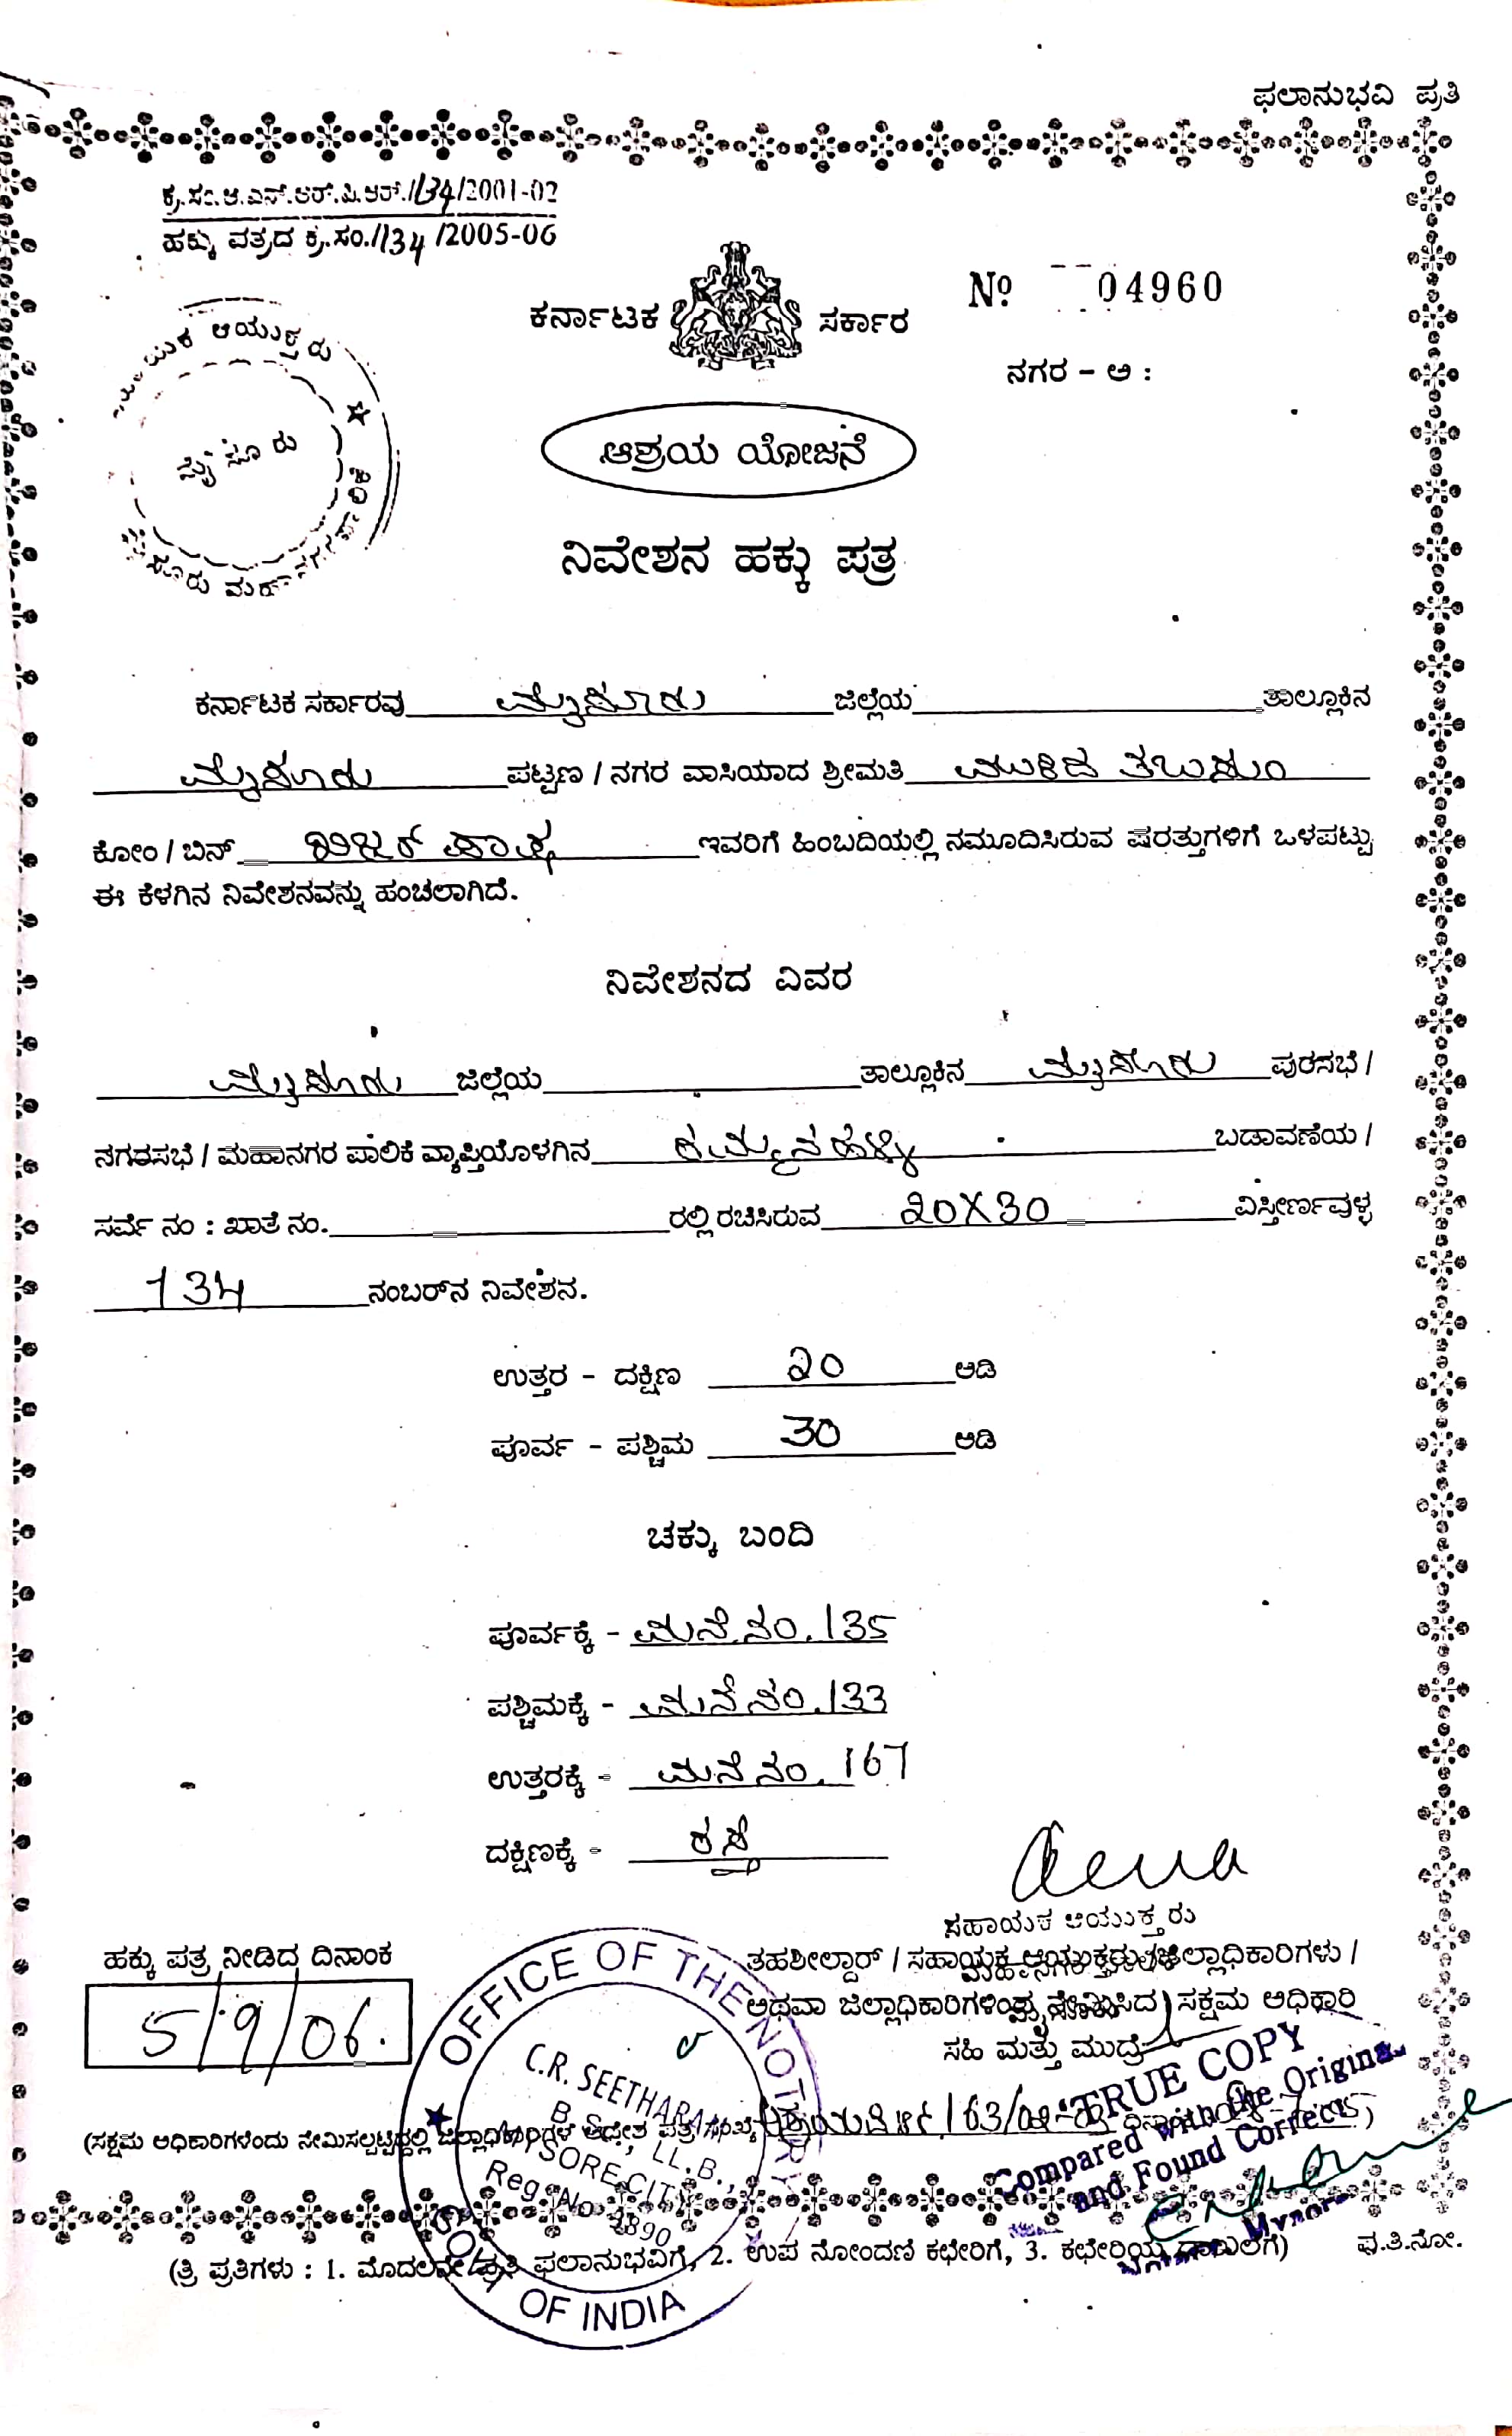 ಫಲಾನುಭವಿ ಪ್ರತಿ
ಕ್ರ.ಸಂ.ಆ.ಎನ್.ಆರ್.ಪಿ.ಆರ್./134/2001-02
ಹಕ್ಕು ಪತ್ರದ ಕ್ರ.ಸಂ./134/2005-06
ಕರ್ನಾಟಕ ಸರ್ಕಾರ
Nº 04960
ನಗರ - ಅ :
ಆಯುಕ್ತರು
ಮೈಸೂರು
ಆಶ್ರಯ ಯೋಜನೆ
ನಿವೇಶನ ಹಕ್ಕು ಪತ್ರ
ಕರ್ನಾಟಕ ಸರ್ಕಾರವು ಮೈಸೂರು ಜಿಲ್ಲೆಯ ತಾಲ್ಲೂಕಿನ
ಮೈಸೂರು ಪಟ್ಟಣ / ನಗರ ವಾಸಿಯಾದ ಶ್ರೀಮತಿ ತಬಸುಂ
ಕೋಂ / ಬಿನ್ ಪಾಷ ಇವರಿಗೆ ಹಿಂಬದಿಯಲ್ಲಿ ನಮೂದಿಸಿರುವ ಷರತ್ತುಗಳಿಗೆ ಒಳಪಟ್ಟು
ಈ ಕೆಳಗಿನ ನಿವೇಶನವನ್ನು ಹಂಚಲಾಗಿದೆ.
ನಿವೇಶನದ ವಿವರ
ಮೈಸೂರು ಜಿಲ್ಲೆಯ ತಾಲ್ಲೂಕಿನ ಮೈಸೂರು ಪುರಸಭೆ /
ನಗರಸಭೆ / ಮಹಾನಗರ ಪಾಲಿಕೆ ವ್ಯಾಪ್ತಿಯೊಳಗಿನ ರಮ್ಮನಹಳ್ಳಿ ಬಡಾವಣೆಯ /
ಸರ್ವೆ ನಂ : ಖಾತೆ ನಂ. ರಲ್ಲಿ ರಚಿಸಿರುವ 20X30 ವಿಸ್ತೀರ್ಣವುಳ್ಳ
134 ನಂಬರ್‌ನ ನಿವೇಶನ.
ಉತ್ತರ - ದಕ್ಷಿಣ 20 ಅಡಿ
ಪೂರ್ವ - ಪಶ್ಚಿಮ 30 ಅಡಿ
ಚಕ್ಕು ಬಂದಿ
ಪೂರ್ವಕ್ಕೆ - ಮನೆ ನಂ. 135
ಪಶ್ಚಿಮಕ್ಕೆ - ಮನೆ ನಂ. 133
ಉತ್ತರಕ್ಕೆ - ಮನೆ ನಂ. 167
ದಕ್ಷಿಣಕ್ಕೆ - ರಸ್ತೆ
ಸಹಾಯಕ ಆಯುಕ್ತರು
ಹಕ್ಕು ಪತ್ರ ನೀಡಿದ ದಿನಾಂಕ
5/9/06.
ತಹಶೀಲ್ದಾರ್ / ಸಹಾಯಕ ಆಯುಕ್ತರು / ಜಿಲ್ಲಾಧಿಕಾರಿಗಳು /
ಅಥವಾ ಜಿಲ್ಲಾಧಿಕಾರಿಗಳಿಂದ ನೇಮಿಸಿದ ಸಕ್ಷಮ ಅಧಿಕಾರಿ
ಸಹಿ ಮತ್ತು ಮುದ್ರೆ
OFFICE OF THE NOTARY
C.R. SEETHARAM
B.Sc., LL.B.,
MYSORE CITY
Reg. No. 2890
OF INDIA
TRUE COPY
Compared with the Original
and Found Correct
(ಸಕ್ಷಮ ಅಧಿಕಾರಿಗಳೆಂದು ನೇಮಿಸಲ್ಪಟ್ಟಿದ್ದಲ್ಲಿ ಜಿಲ್ಲಾಧಿಕಾರಿಗಳ ಆದೇಶ ಪತ್ರ ಸಂಖ್ಯೆ ದಿನಾಂಕ )
(ತ್ರಿ ಪ್ರತಿಗಳು : 1. ಮೊದಲನೇ ಪ್ರತಿ ಫಲಾನುಭವಿಗೆ, 2. ಉಪ ನೋಂದಣಿ ಕಛೇರಿಗೆ, 3. ಕಛೇರಿಯ ದಾಖಲೆಗೆ) ಪ.ತಿ.ನೋ.